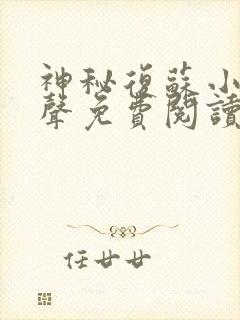 神秘復蘇小
聲免費閱讀
任廿廿